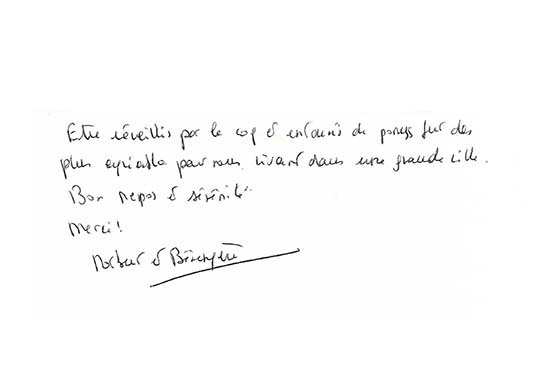 Etre réveillés par le coq et entourés de poneys fut des
plus agréable pour nous, vivant dans une grande ville.
Bon repos et sérénité
Merci!
Norbert et Bérengère